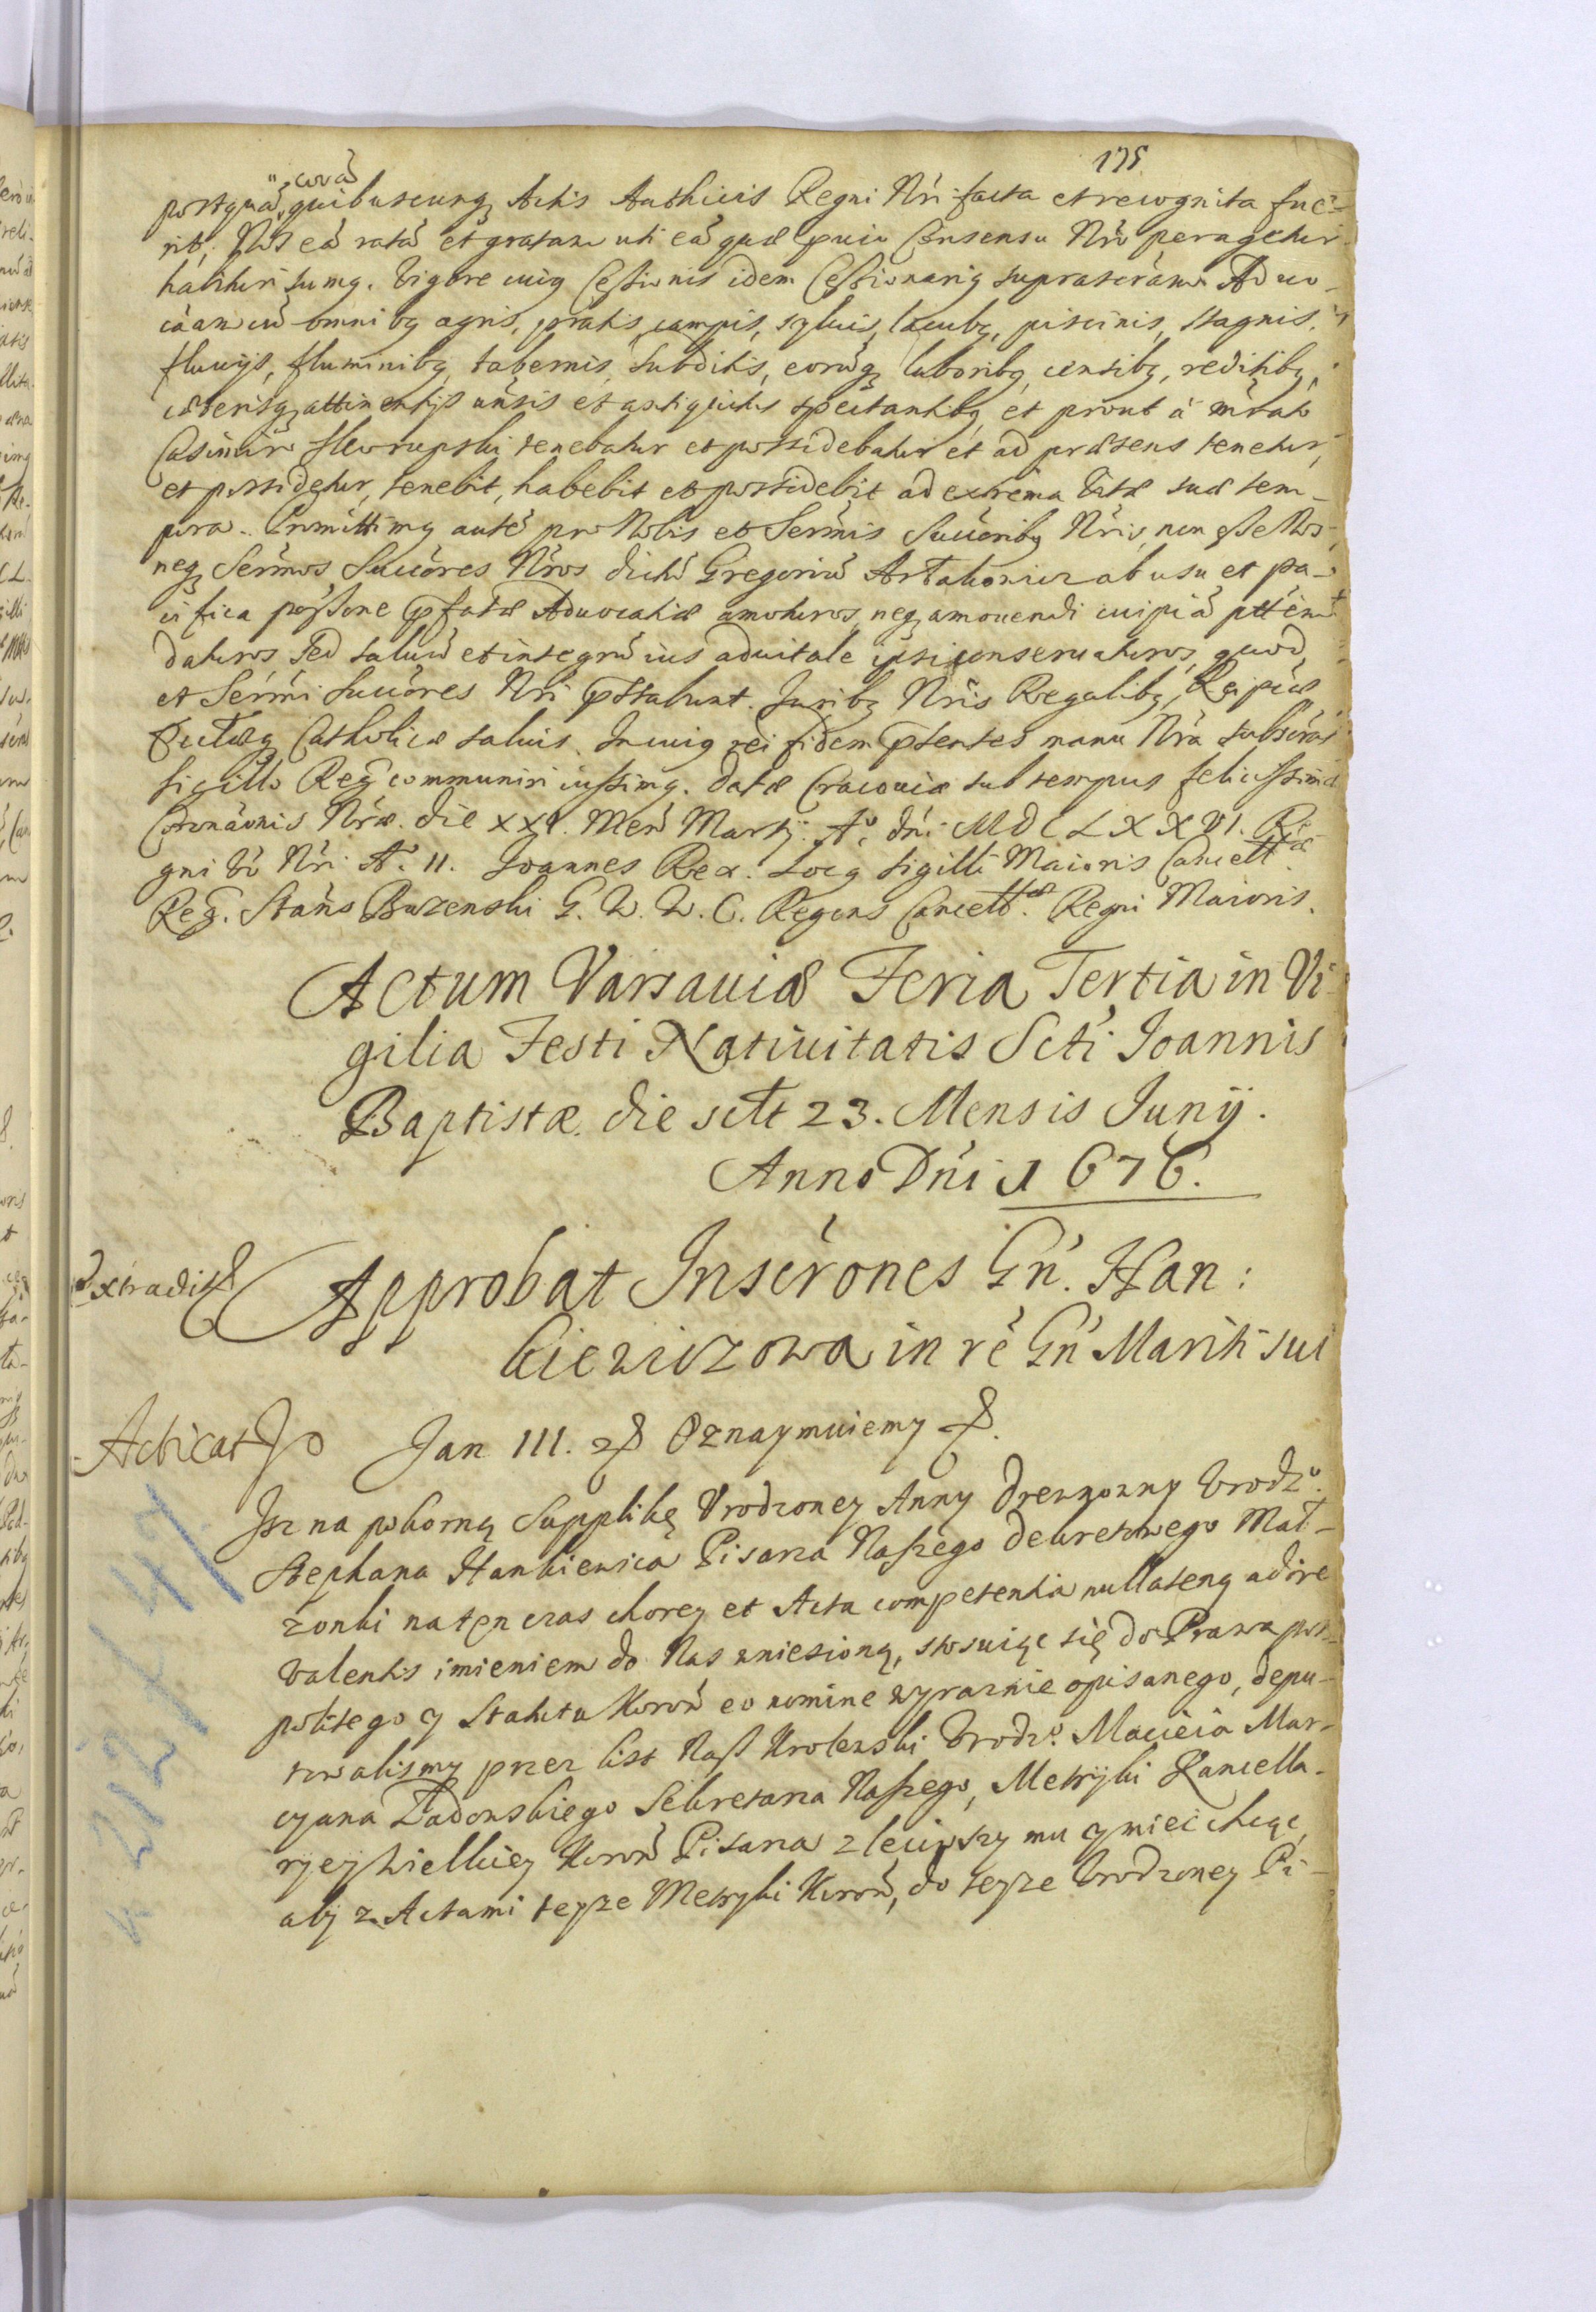 175
corã
postquã quibuscunq Actis Authicis Regni Nri facta et recognita fue-
rit, Nos eã ratã et gratam uti eã quæ pvio Consensu Nro peragetur
habituri sumq. Vigore cuiq Cessionis idem Cessionariq suprascram Advo-
caam cũ omnibq agris, pratis, campis, sylvis, lacubq, piscinis, stagnis,
fluvijs, fluminibq, tabernis, subditis, eorũq laboribq, censibq, reditibq,
cæterisq attinentijs uñsis et antiquitus spectantibq et prout à mrato
Casimiro Skorupski tenebatur et possidebatur et ad præsens tenetur,
et possidetur, tenebit, habebit et possidebit ad extrema Vitæ suæ tem-
pora. Promittimq autẽ pro Nobis et Sermis Succoribq Nris, non esse Nos,
neq Sermos Succores Nros dictũ Gregoriũ Artakonicz ab usu et pa-
cifica possone pfatæ Advocatiæ amoturos, neq amovendi cuipiã pttem
daturos sed salvũ et integrũ ius advitale ipsi conservaturos, quod
et Sermi Succores Nri pstabunt. Juribq Nris Regalibq, Reipcæ
Ecclæq Catholicæ salvis. In cuiq rei fidem pstentes manu Nra subscras
sigillo Regni communiri iussimq. Datæ Cracoviæ sub tempus felicissimæ
Coronaonis Nræ. die XXI. Men Martij. Ao. Dni MDCLXXVI. Re
gni vo Nri Ao. II. Joannes Rex. Locq sigilli Maioris Cancellæ
Reg. Stans Buzenski G. W. W. C. Regens Cancellæ Regni Maioris.
Actum Varsaviæ Feria Tertia in Vi-
gilia Festi Nativitatis Scti Joannis
Baptistæ. die sctt 23. Mensis Junij.
Anno Dni 1676.
Extradit
Approbat Inscrones Gn. Han:
kiewiczowa in re Gn Mariti sui
Acticat
Jan III. Oznaymuiemy
Isz na pokorną Supplikę Urodzoney Anny Drewnowny Urodzo.
Stephana Hankiewica Pisarza Naszego dekretowego Mał-
zonki na ten czas chorey et Acta competentia nullatenq adire
valentis imieniem do Nas wniesioną, stosuiąc się do Prawa pos-
politego y Statutu Koron eo nomine wyraznie opisanego, depu-
towalismy przez list Nasz Krolewski Urodzo. Macieia Mar-
cyana Ładowskiego Sekretarza Naszego, Metryki Kancella-
ryey Wielkiey Koron Pisarza zleciwszy mu y miec chcąc,
aby z Actami teyze Metryki Koron, do teyze Urodzoney Pi-